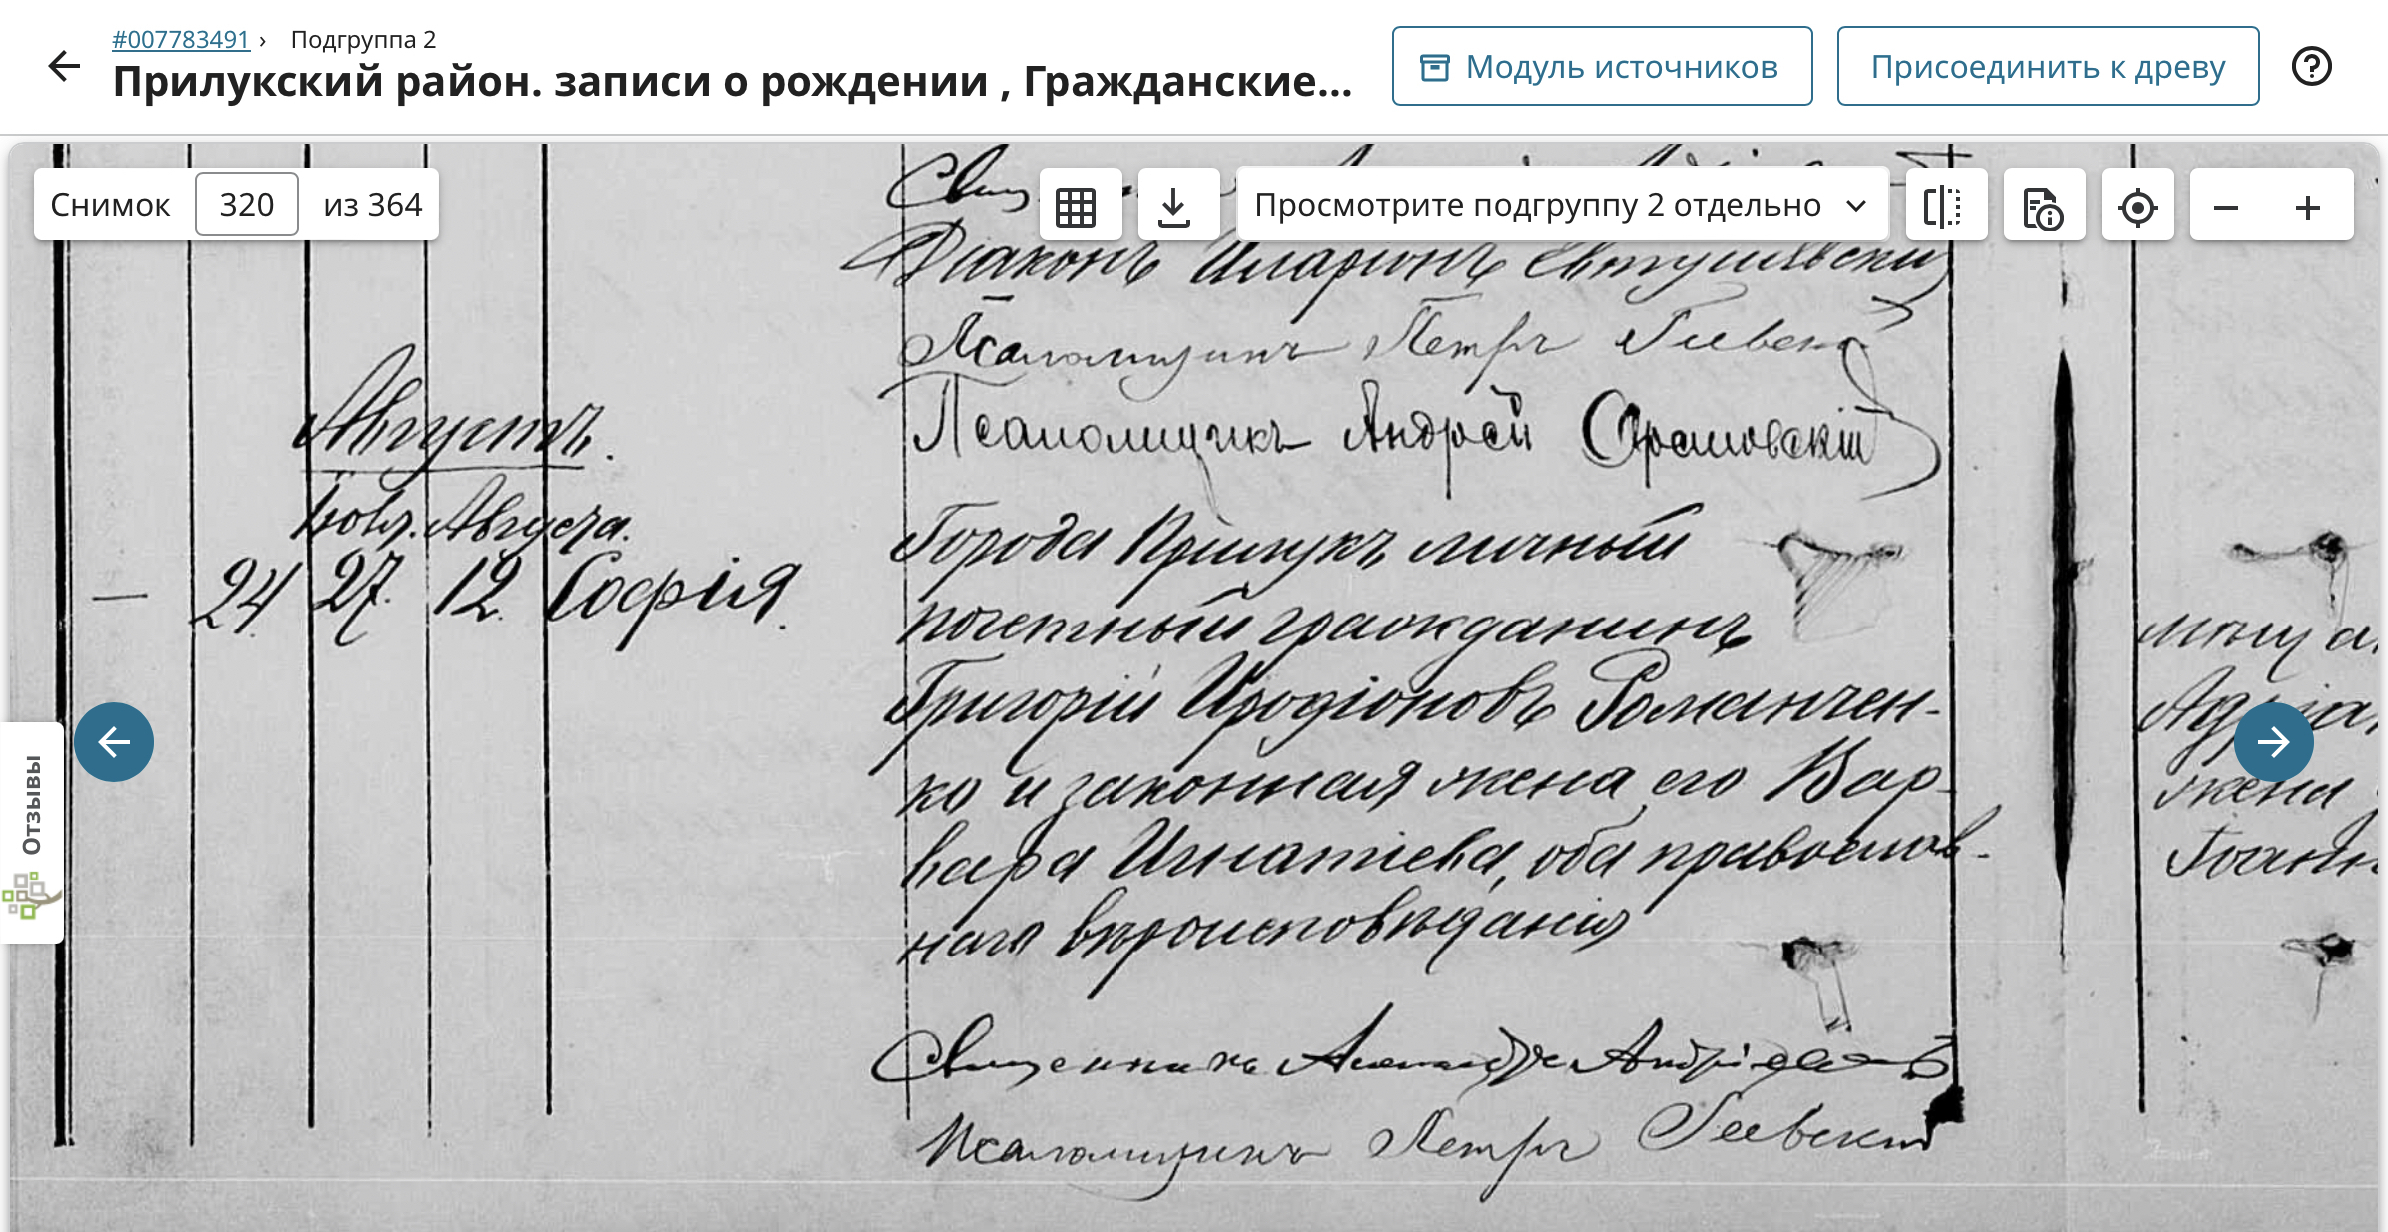 #007783491 › Подгруппа 2
Прилукский район. записи о рождении , Гражданские...
Модуль источников
Присоединить к древу
Снимок 320 из 364
Просмотрите подгруппу 2 отдельно
Отзывы
Діаконъ Иларіонъ Евтушевскій
Псаломщикъ Петръ Гіевскій
Псаломщикъ Андрей
Августъ.
Августа.
— 24. 27. 12. Софія.
Города Прилукъ личный
почетный гражданинъ
Григорій Иродіоновъ Романчен-
ко и законная жена его Вар-
вара Игнатіева, оба православ-
наго вѣроисповѣданія
жена
Іоанн
Священникъ Александръ
Псаломщикъ Петръ Гіевскій